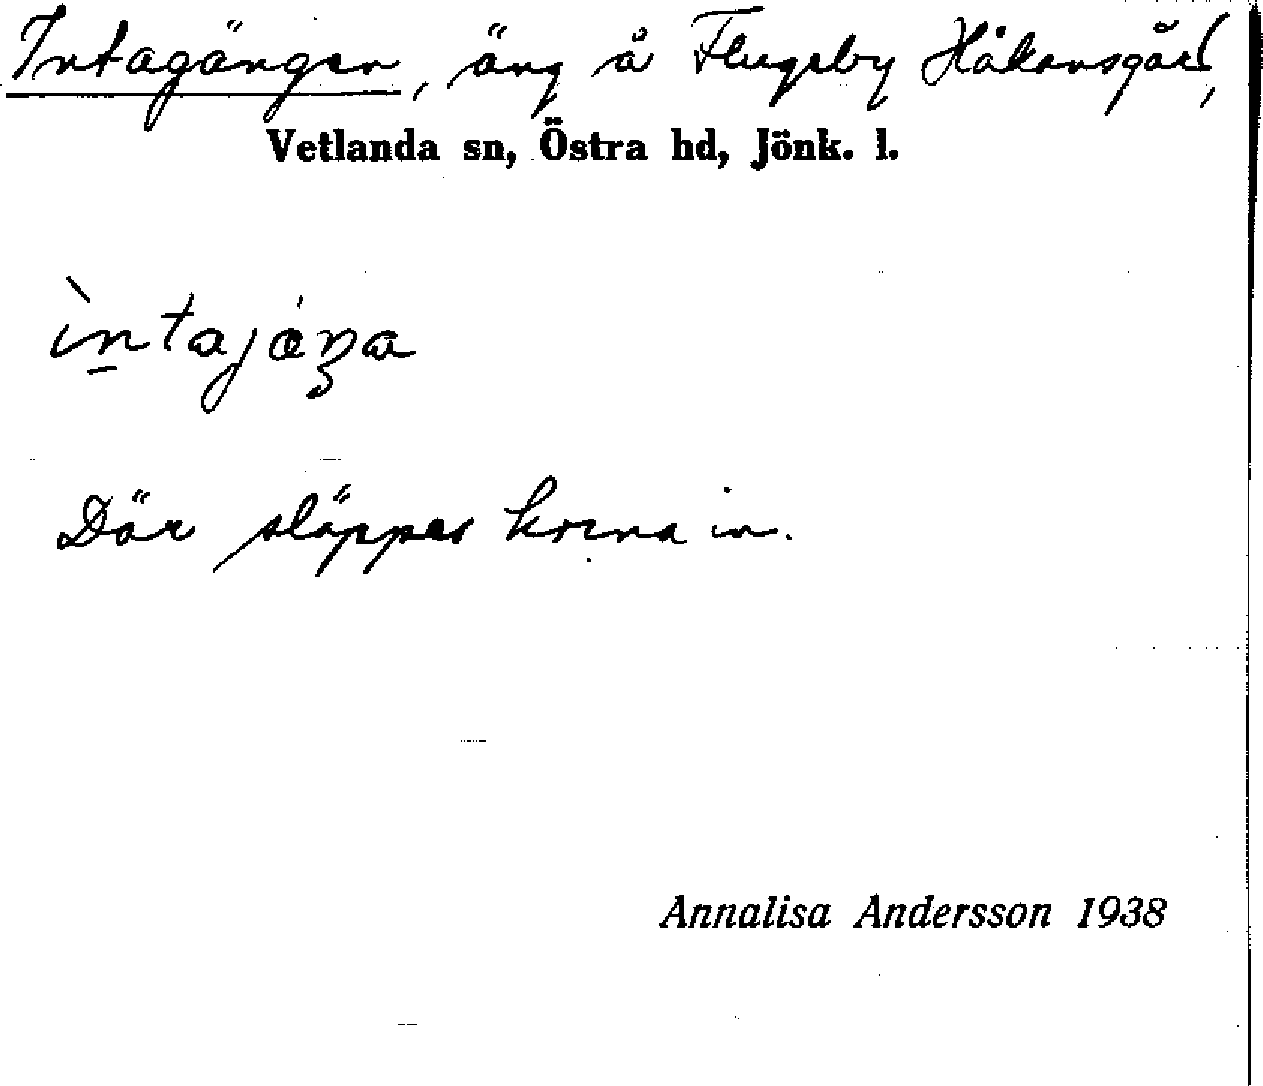 Intagängen, äng å Flugeby Håkansgård,
Vetlanda sn, Östra hd, Jönk. l.
ìntajáŋa
Där släppes korna in.
Annalisa Andersson 1938